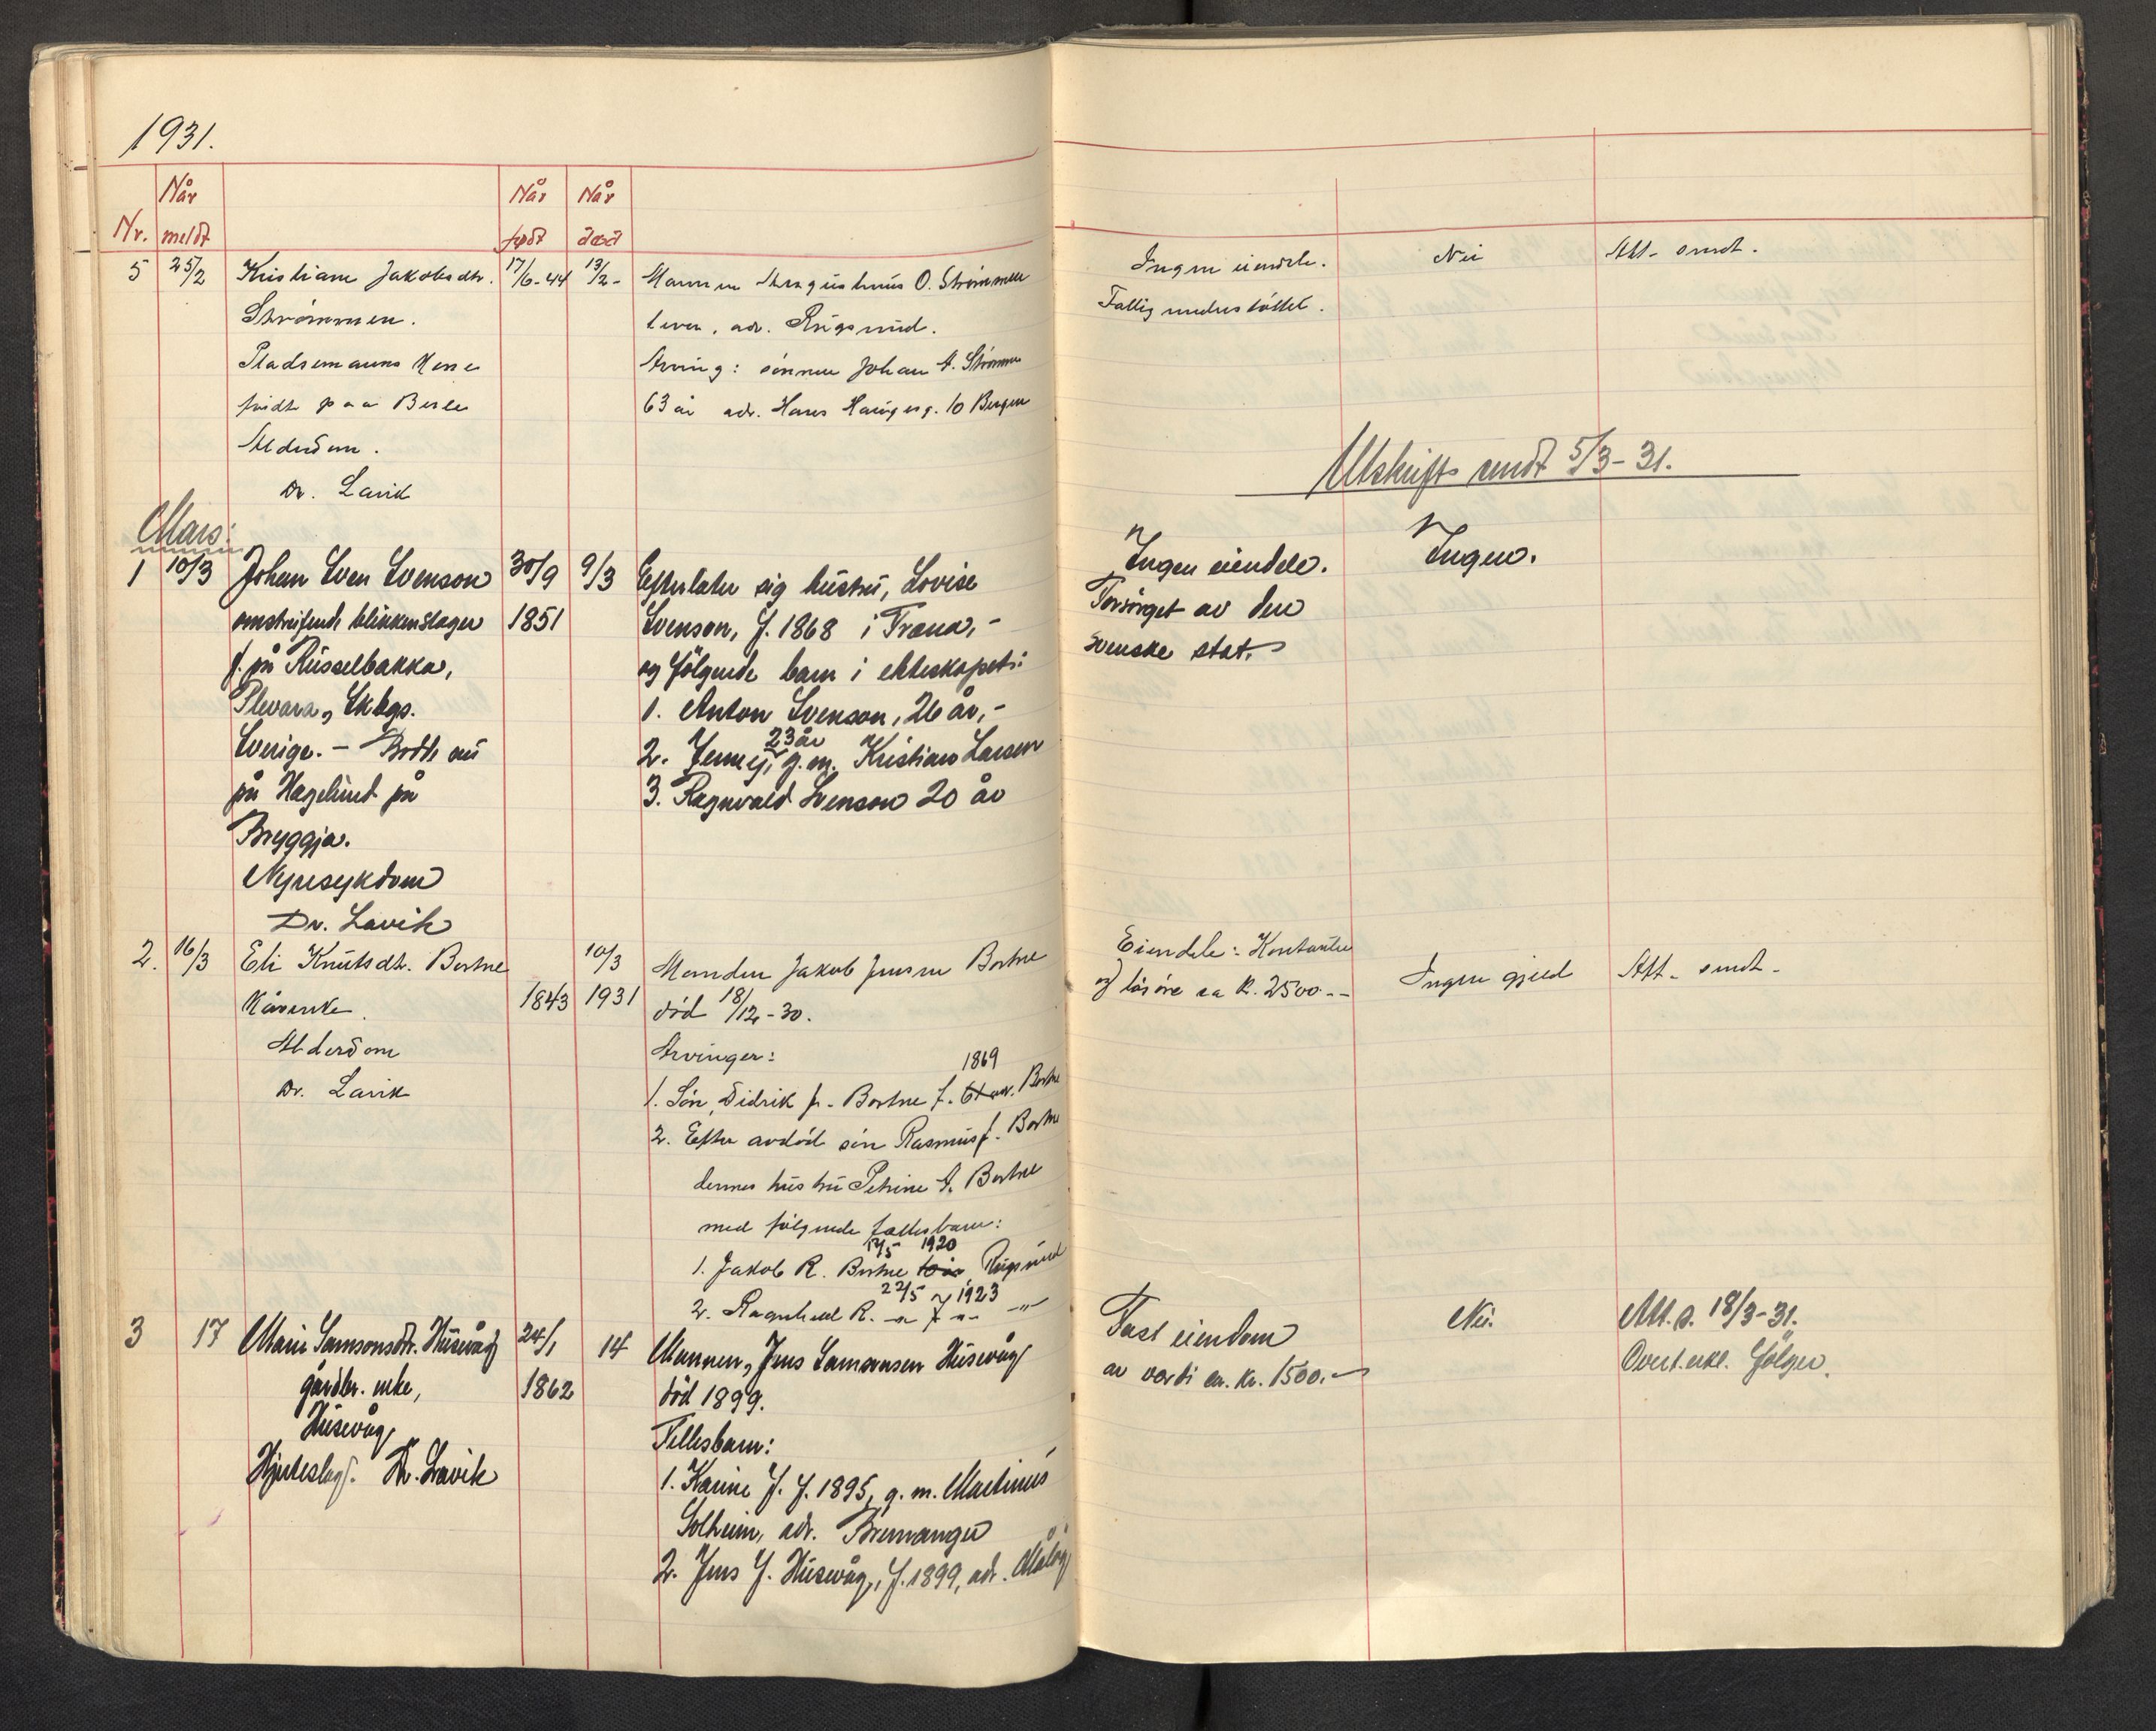 1931.
Nr. Når meldt Når født Når død
5 25/2 Kristiane Jakobsdtr. 17/6-44 13/2- Mannen O. Strømmen
Strømmen. lever, adr. Rugsund.
Pladsemanns Arving: sønnen Johan A. Strømmen
født paa Berle 63 år adr. Hans Haugesg. 10 Bergen
Alderdom.
Dr. Lavik
Ingen eiendele. Nei Att. sendt.
Fattigunderstøttet.
Utskrift sendt 5/3-31.
Mars:
1 10/3 Johan Sven Svenson 30/9 9/3 Efterlater sig hustru, Lovise
omstreifende blikkenslager 1851 Svenson, f. 1868 i Træna,-
f. på Russelbakka, og følgende barn i ekteskapet:
Sverige. – Bodde nu 1. Anton Svenson, 26 år,-
på Hagelund på 2. Jenny, 23 år g.m. Kristian Larsen
Bryggja. 3. Ragnvald Svenson 20 år
Nyresykdom
Dr. Lavik
Ingen eiendele. Ingen.
Forsørget av den
svenske stat.
2. 16/3 Eli Knutsdtr. Bortne 10/3 Manden Jakob Jensen Bortne
Kårenke. 1843 1931 død 18/12-30.
Alderdom Arvinger:
Dr. Lavik 1. Søn, Didrik J. Bortne f. 1869 adr. Bortne
2. Efter avdød søn Rasmus J. Bortne
dennes hustru Petrine A. Bortne
med følgende fællesbarn:
1. Jakob R. Bortne 1920 Rugsund
2. Ragnhild R. -"- f. 22/5 1923 -"-
Eiendele: Kontanter
og løsøre ca kr. 2500.-- Ingen gjeld Att. sendt.
3 17 Marie Samsonsdtr. Husevåg 24/1 14 Mannen, Jens Samsonsen Husevåg
gårdbr. enke, 1862 død 1899.
Husevåg Fellesbarn:
Hjerteslag. Dr. Lavik 1. Karine J. f. 1895, g.m. Martinus
Solheim, adr. Bremanger
2. Jens J. Husevåg, f. 1899, adr. Måløy
Fast eiendom Nei. Att. s. 18/3-31.
av verdi ca. kr. 1500.- Overt. erkl. følger.